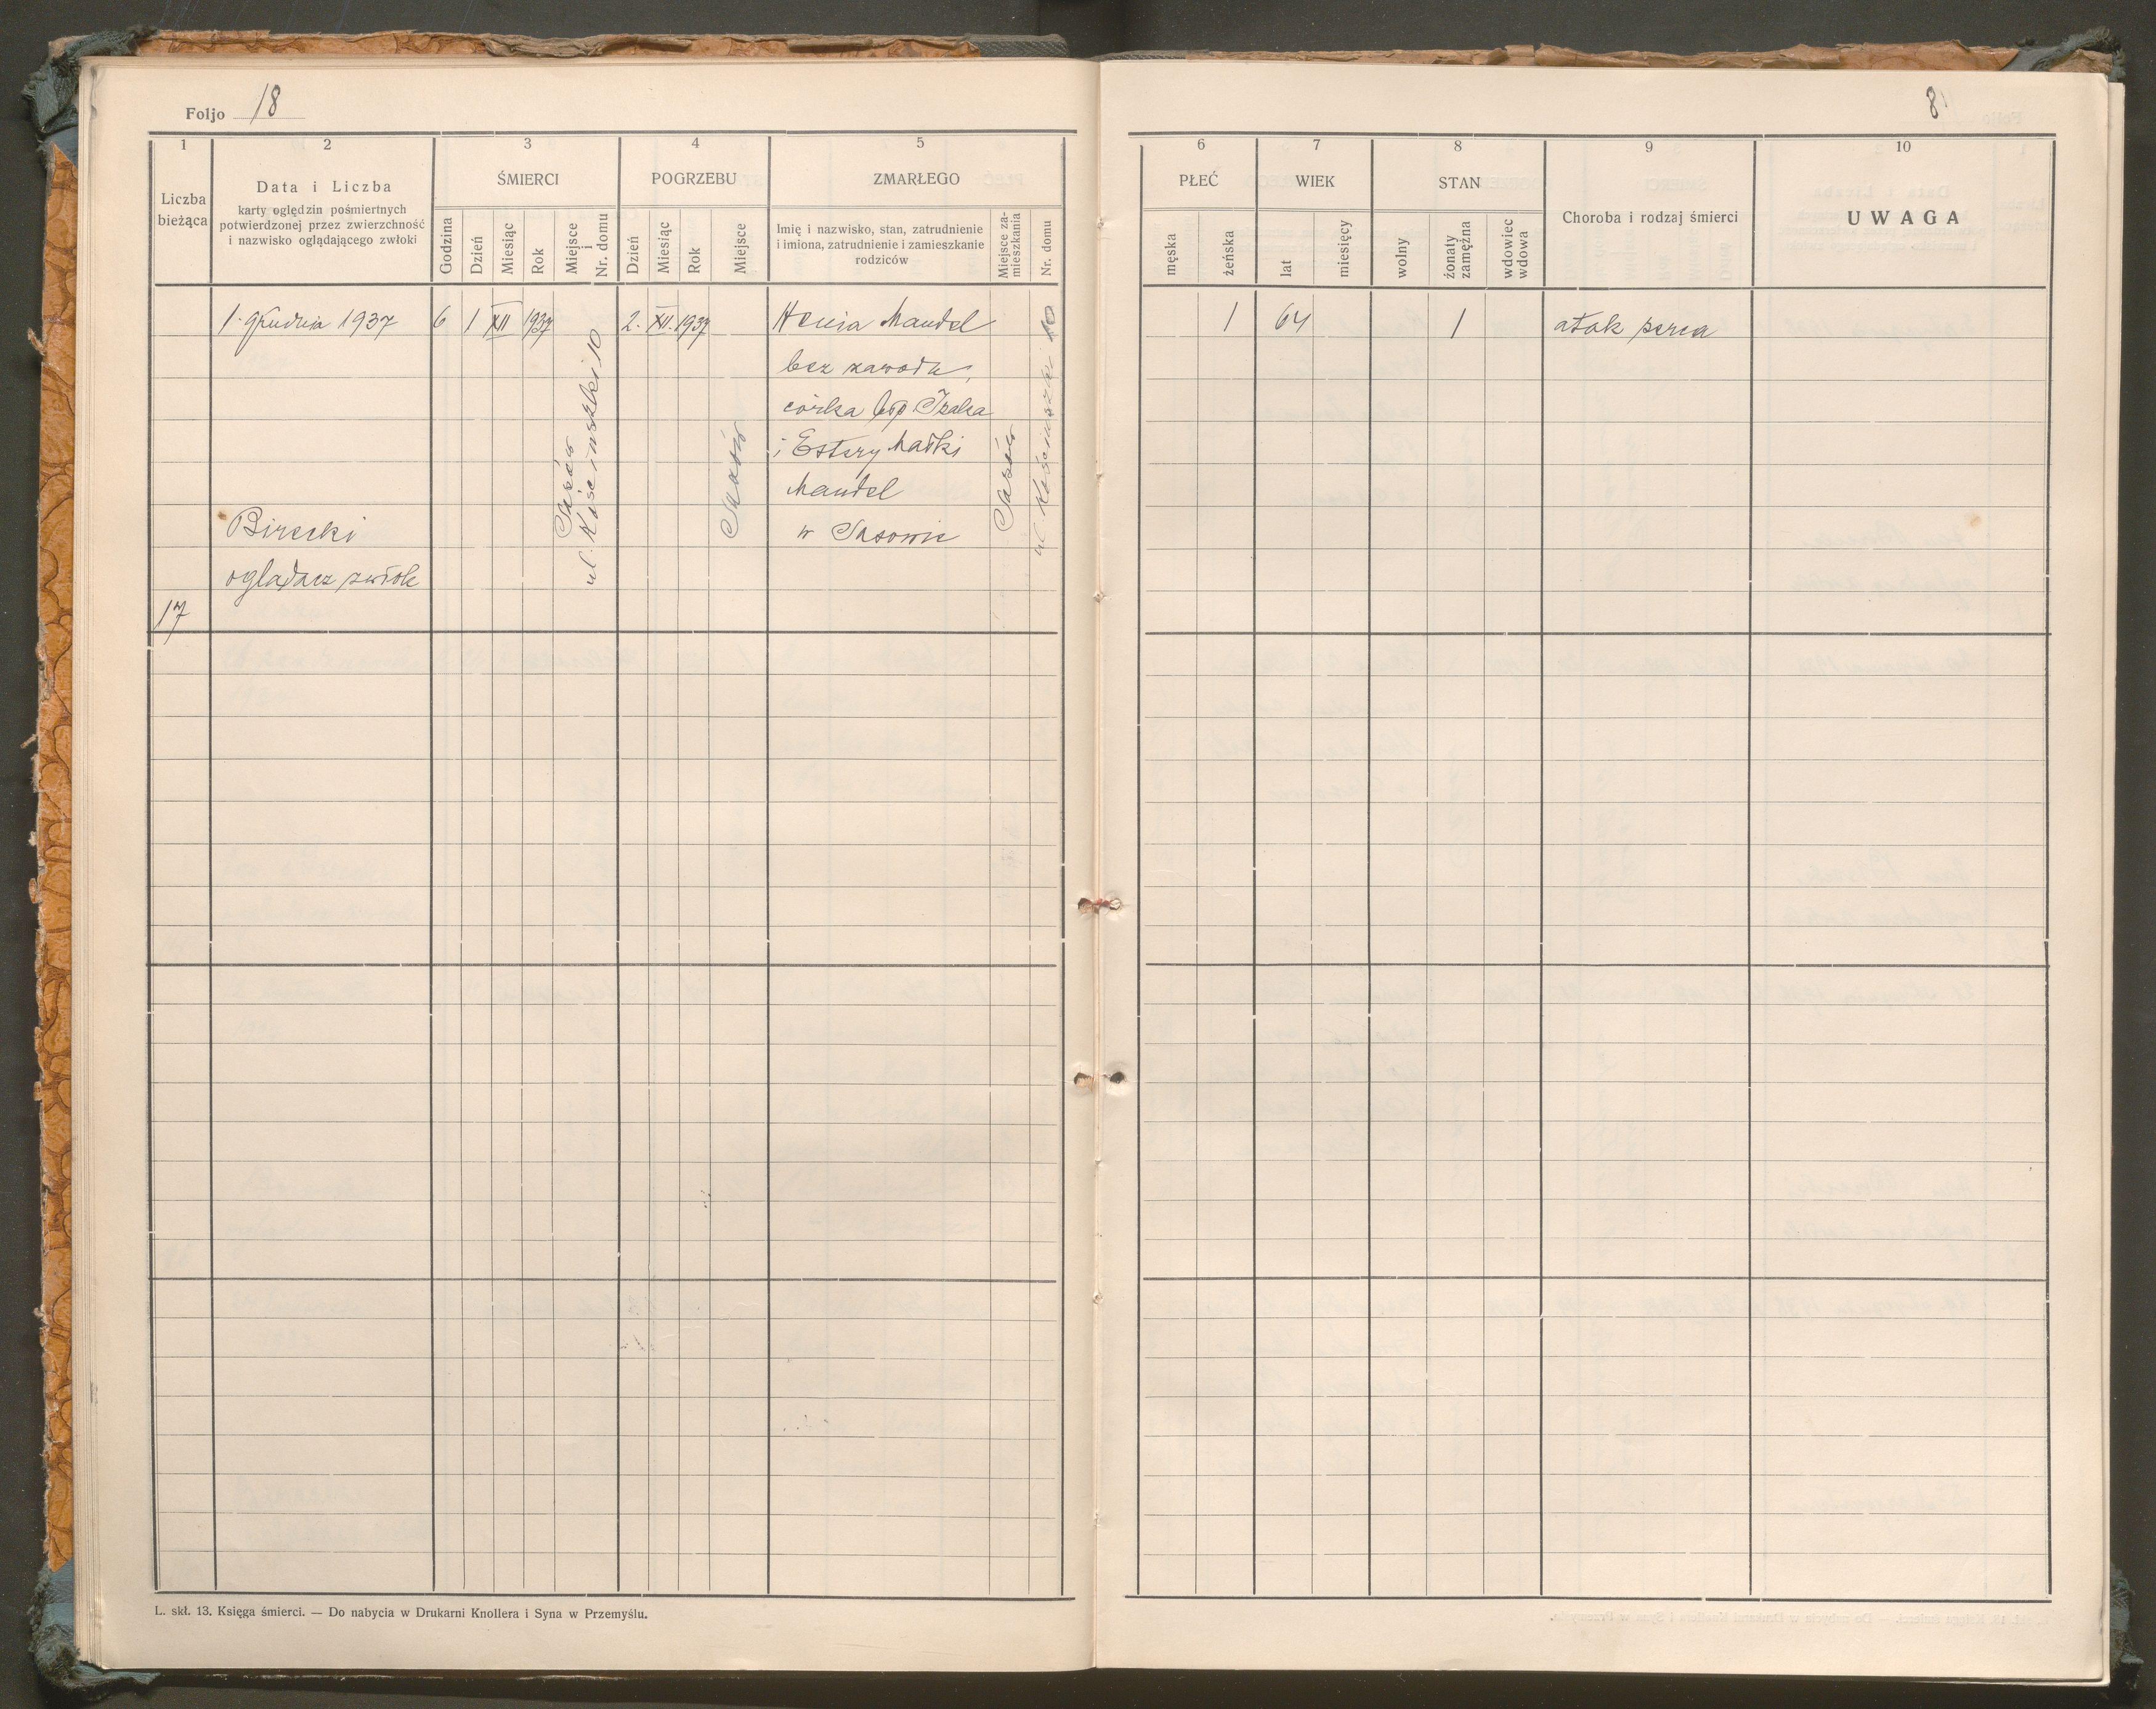 Foljo 18
8
1 2 3 4 5
Liczba bieżąca
Data i Liczba
karty oględzin pośmiertnych
potwierdzonej przez zwierzchność
i nazwisko oglądającego zwłoki
ŚMIERCI
Godzina
Dzień
Miesiąc
Rok
Miejsce i Nr. domu
POGRZEBU
Dzień
Miesiąc
Rok
Miejsce
ZMARŁEGO
Imię i nazwisko, stan, zatrudnienie
i imiona, zatrudnienie i zamieszkanie
rodziców
Miejsce za-
mieszkania
Nr. domu
6 7 8 9 10
PŁEĆ
męska
żeńska
WIEK
lat
miesięcy
STAN
wolny
żonaty
zamężna
wdowiec
wdowa
Choroba i rodzaj śmierci
UWAGA
1. grudnia 1937
6 1 XII 1937
Sasów
ul. Kościuszki 10
2. XII. 1937
Sasów
Henia Mandel
bez zawodu,
córka Izaka
i Estery Małki
Mandel
w Sasowie
Sasów
ul. Kościuszki 10
1 64 1 atak serca
Birecki
oglądacz zwłok
17
L. skł. 13. Księga śmierci. — Do nabycia w Drukarni Knollera i Syna w Przemyślu.